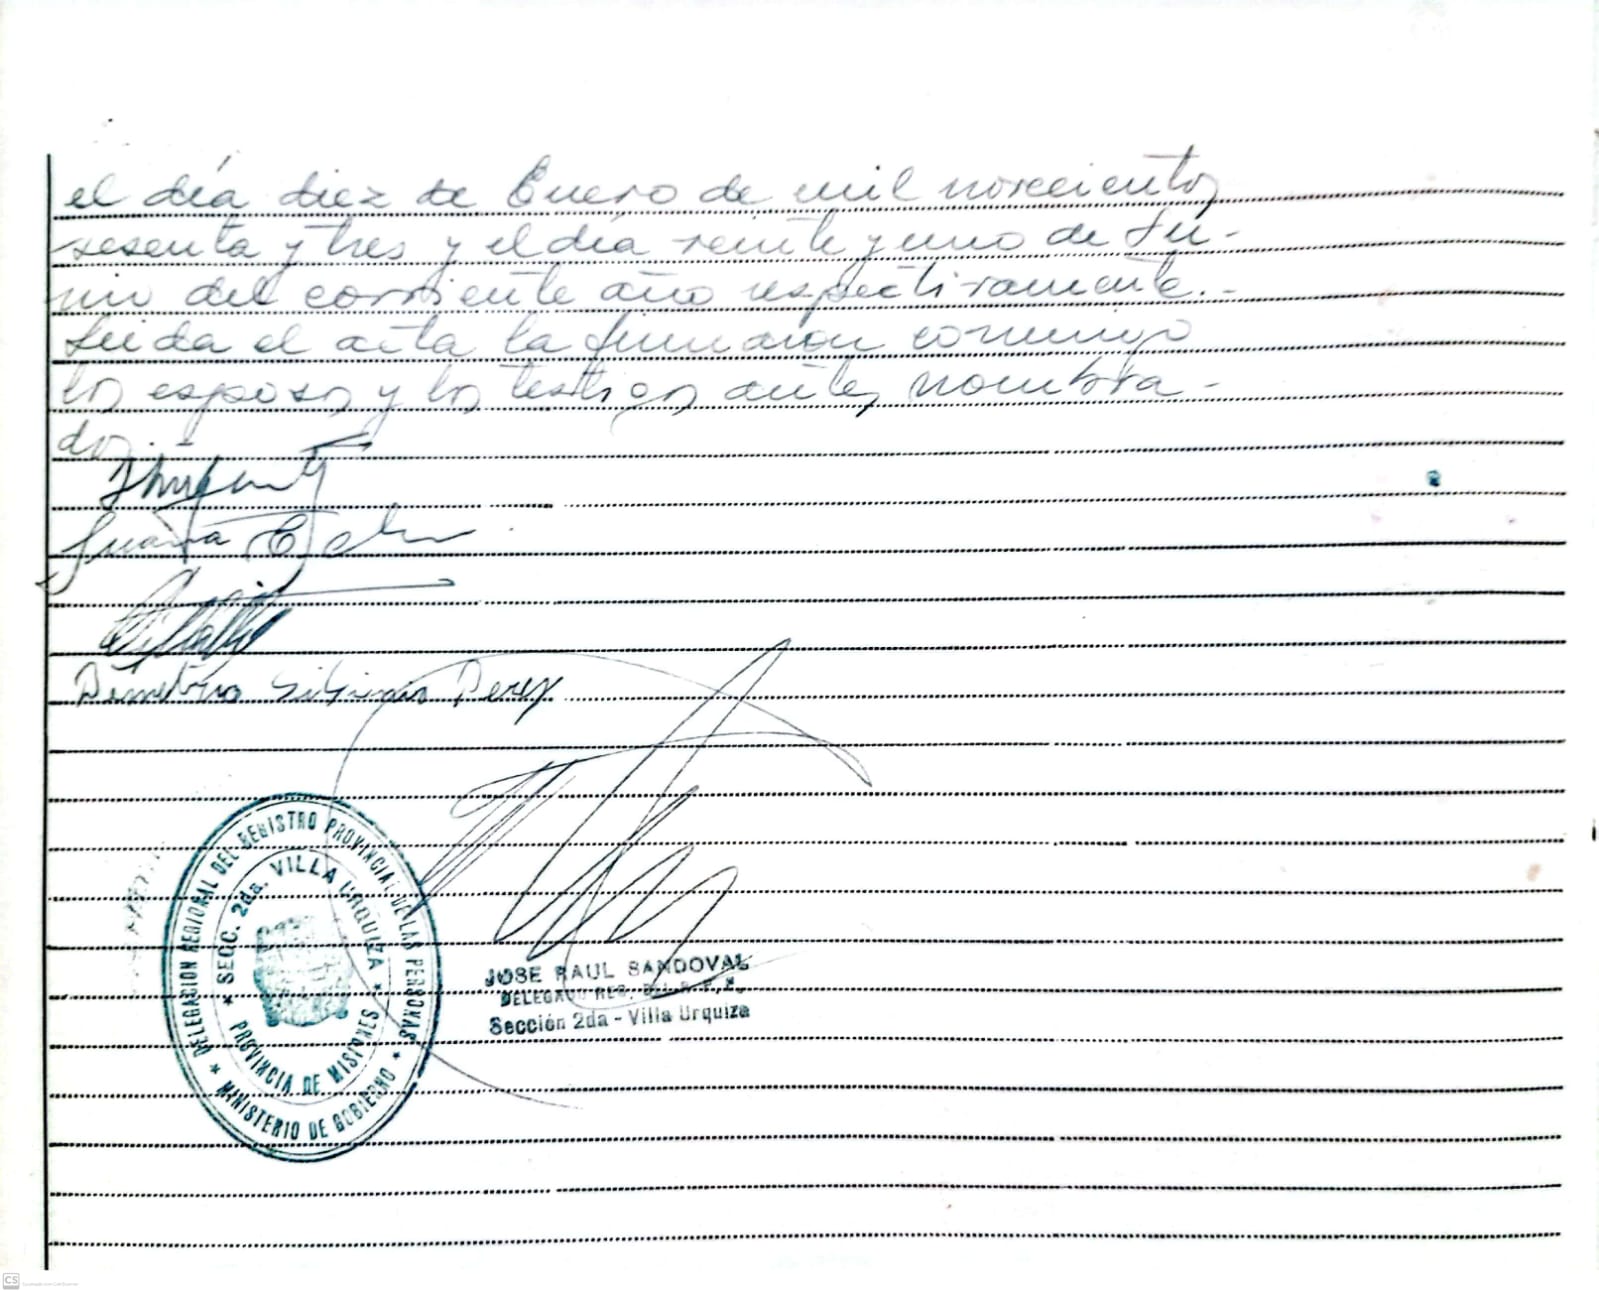 el día diez de Enero de mil novecientos
sesenta y tres y el día veinte y uno de Ju-
nio del corriente año respectivamente.-
Leida el acta la firmaron conmigo
los esposos y los testigos antes nombra-
dos.-
Juana E
Demetrio Perez
DELEGACION REGIONAL DEL REGISTRO PROVINCIAL DE LAS PERSONAS
★ MINISTERIO DE GOBIERNO ★
★ SECC. 2da. VILLA URQUIZA ★
PROVINCIA DE MISIONES
JOSE RAUL SANDOVAL
DELEGADO REG. DEL R. P. P.
Sección 2da - Villa Urquiza
CS